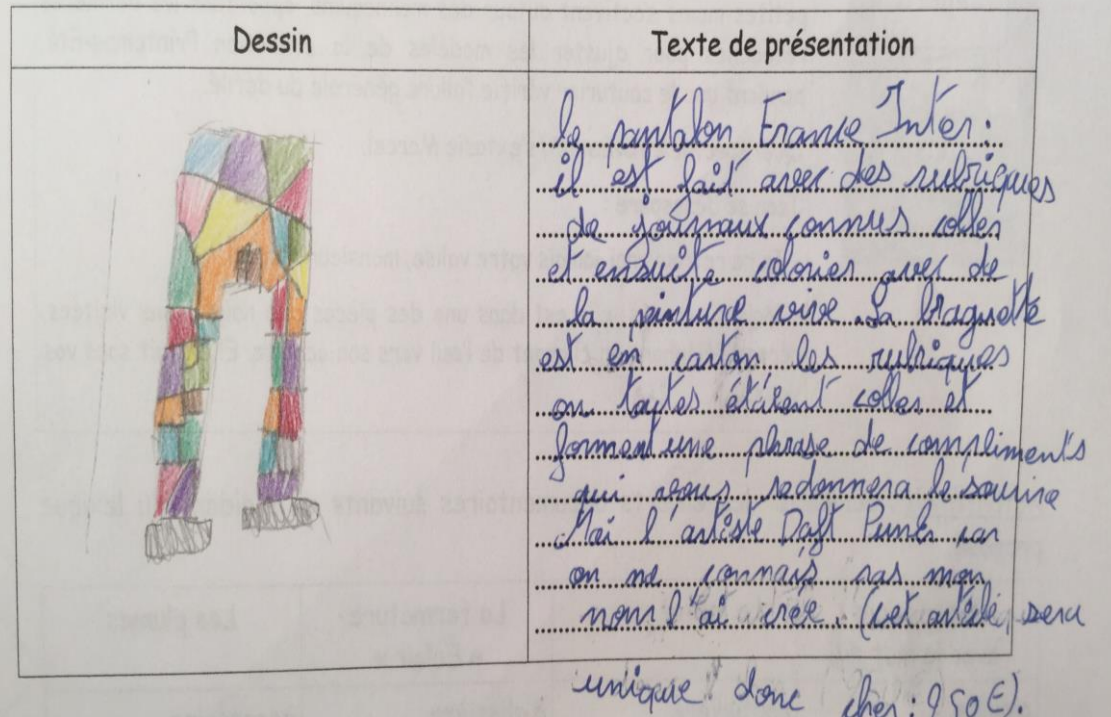 Dessin
Texte de présentation
le pantalon France Inter :
il est fait avec des rubriques
de journaux connus coller
et ensuite colorier avec de
la peinture vive. La braguette
est en carton les rubriques
on toutes étaient coller et
forment une phrase de compliments
qui vous redonnera le sourire
Moi l'artiste Daft Punk car
on ne connais pas mon
nom l'ai créé. (cet article, sera
unique donc cher : 950€).